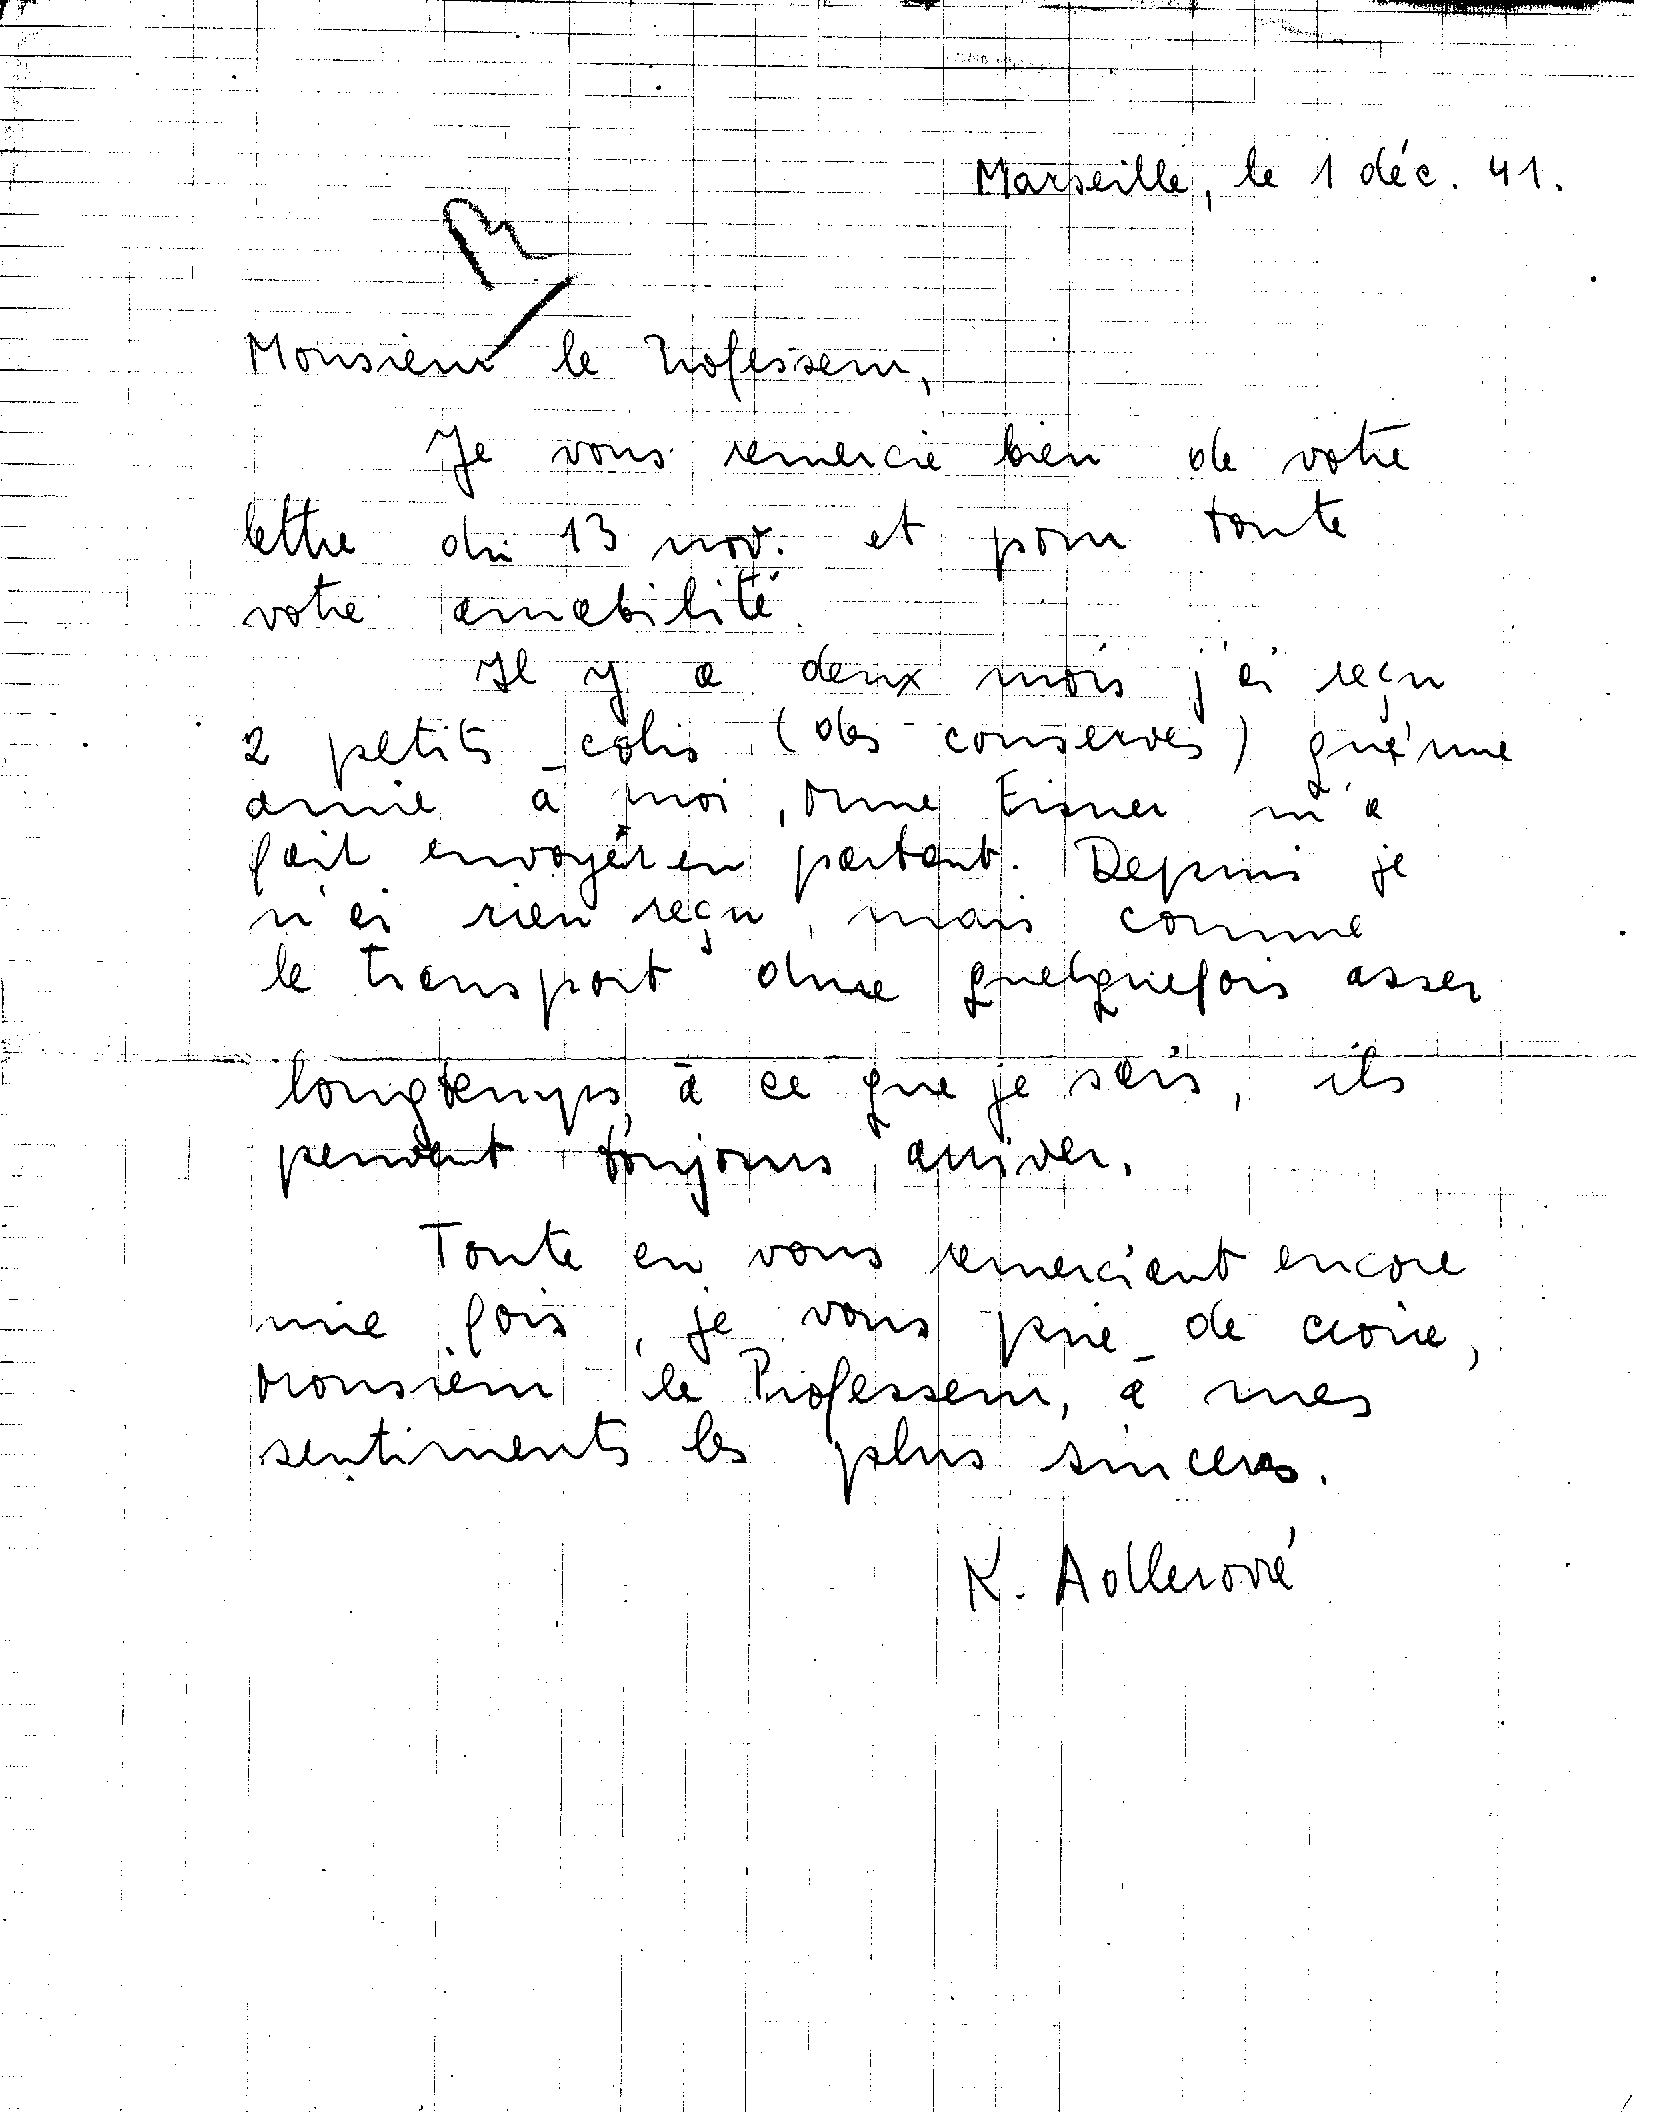 Marseille, le 1 déc. 41.
Monsieur le Professeur,
Je vous remercie bien de votre
lettre du 13 nov. et pour toute
votre amabilité.
Il y a deux mois j'ai reçu
2 petits colis (des conserves) qu'une
amie à moi, Mme Eisner m'a
fait envoyer en partant. Depuis je
n'ai rien reçu, mais comme
le transport dure quelquefois assez
longtemps, à ce que je sais, ils
peuvent toujours arriver.
Toute en vous remerciant encore
une fois, je vous prie de croire,
Monsieur le Professeur, à mes
sentiments les plus sinceres.
K. Adlerová